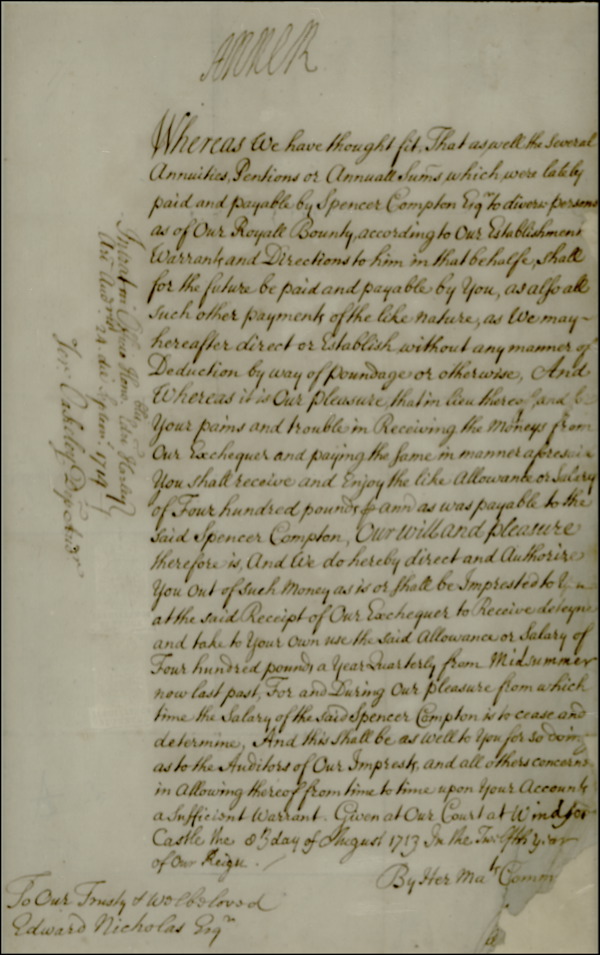 ANNE R
Whereas We have thought fit, That as well the several
Annuities, Pentions or Annuall Sums, which were lately
paid and payable by Spencer Compton Esqr. to divers persons
as of Our Royall Bounty, according to Our Establishment
Warrants and Directions to him in that behalfe, shall
for the future be paid and payable by You, as also all
such other payments of the like nature, as We may
hereafter direct or Establish without any manner of
Deduction by way of poundage or otherwise, And
Whereas it is Our pleasure, that in lieu thereof, and
Your pains and trouble in Receiving the Moneys from
Our Exchequer and paying the same in manner aforesaid
You shall receive and Enjoy the like Allowance or Salary
of Four hundred pounds ann as was payable to the
said Spencer Compton, Our Will and pleasure
therefore is, And We do hereby direct and Authorize
You out of such Money as is or shall be Imprested to
at the said Receipt of Our Exchequer to Receive deteyne
and take to Your own use the said Allowance or Salary of
Four hundred pounds a Year Quarterly from Midsummer
now last past, For and During Our pleasure from which
time the Salary of the said Spencer Compton is to cease and
determine, And this shall be as well to You for so doing
as to the Auditors of Our Imprests, and all others concern
in Allowing thereof from time to time upon Your Accounts
a Sufficient Warrant. Given at Our Court at Windsor
Castle the 8th day of August 1713 In the Twelfth year
of Our Reign.
By Her Mats Comm
To Our Trusty & Welbeloved
Edward Nicholas Esqr
Harley
24 die 1714